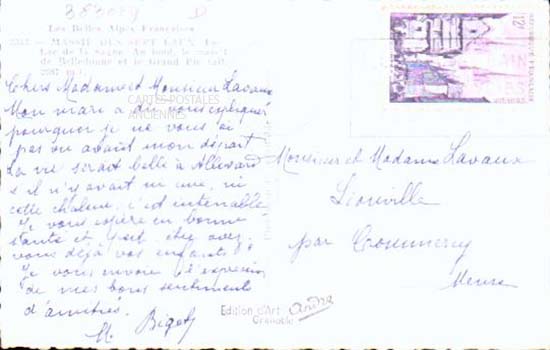 388029 D
Les Belles Alpes Françaises
MASSIF DES SEPT LAUX
Lac de la Au fond, le
de Belledonne et le Grand Pic (alt.
2981 m.)
Chers Madame et Monsieur Lavaux
Mon mari a dû vous expliquer
pourquoi je ne vous ai
pas vu avant mon départ
La vie serait belle à Allevard
s'il n'y avait ni cure, ni
cette chaleur, c'est intenable
Je vous espère en bonne
santé et chez avez
vous déjà vos enfants?
Je vous envoie l'expression
de mes bons sentiments
d'amitiés.
M. Bigot
CARTES POSTALES
ANCIENNES
12f
Monsieur et Madame Lavaux
Liouville
par
Meuse
Edition d'Art André
Grenoble